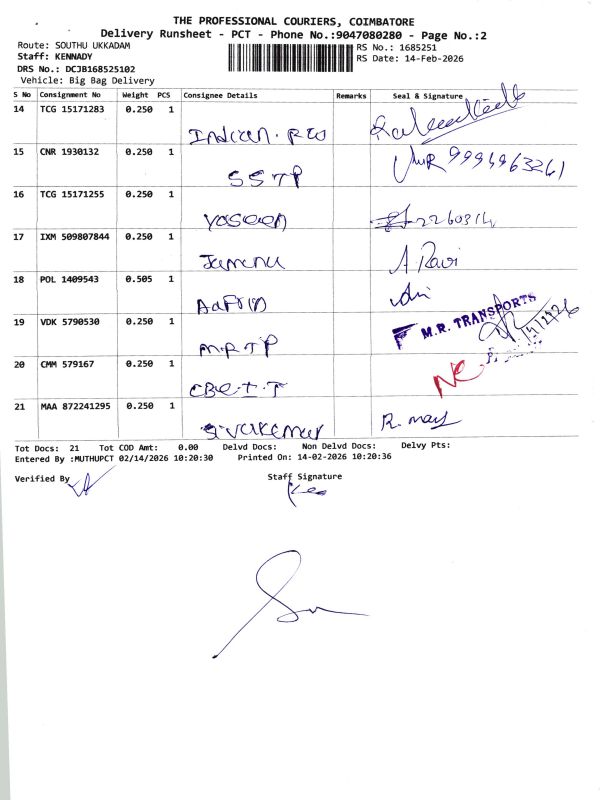 THE PROFESSIONAL COURIERS, COIMBATORE
Delivery Runsheet - PCT - Phone No.:9047080280 - Page No.:2
Route: SOUTHU UKKADAM
RS No.: 1685251
Staff: KENNADY
RS Date: 14-Feb-2026
DRS No.: DCJB168525102
Vehicle: Big Bag Delivery
S No Consignment No Weight PCS Consignee Details Remarks Seal & Signature
14 TCG 15171283 0.250 1
Indian
15 CNR 1930132 0.250 1
SSTP 9994963261
16 TCG 15171255 0.250 1
Yaseen
17 IXM 509807844 0.250 1
A Ravi
18 POL 1409543 0.505 1
19 VDK 5790530 0.250 1
M.R. TRANSPORTS
M.R.T.P
20 CMM 579167 0.250 1
NC
21 MAA 872241295 0.250 1
Sivakumar
Tot Docs: 21 Tot COD Amt: 0.00 Delvd Docs: Non Delvd Docs: Delvy Pts:
Entered By :MUTHUPCT 02/14/2026 10:20:30 Printed On: 14-02-2026 10:20:36
Verified By
Staff Signature